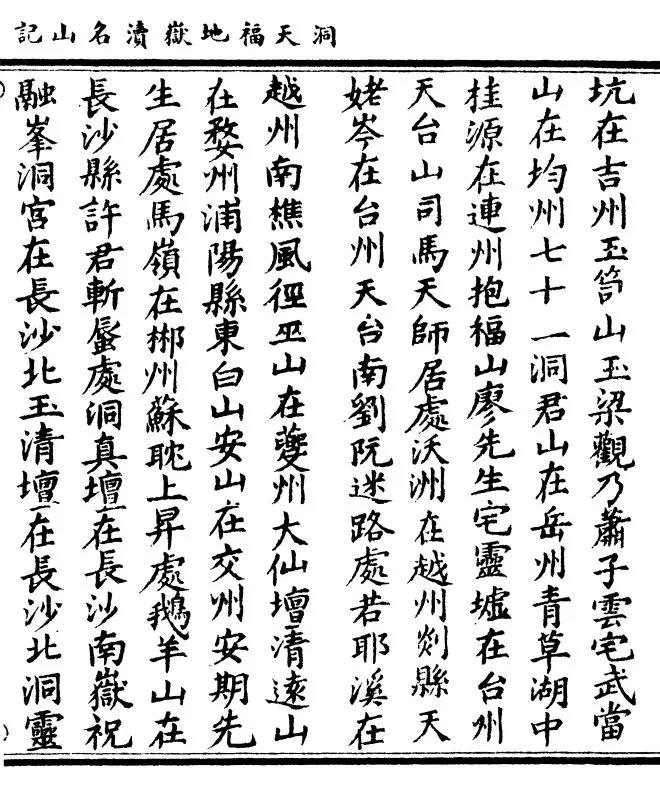 洞天福地嶽瀆名山記
坑在吉州玉笥山玉梁觀乃蕭子雲宅武當
山在均州七十一洞君山在岳州青草湖中
桂源在連州抱福山廖先生宅靈墟在台州
天台山司馬天師居處沃洲在越州剡縣天
姥岑在台州天台南劉阮迷路處若耶溪在
越州南樵風徑巫山在夔州大仙壇清遠山
在婺州浦陽縣東白山安山在交州安期先
生居處馬嶺在郴州蘇耽上昇處鵝羊山在
長沙縣許君斬蜃處洞真壇在長沙南嶽祝
融峯洞宮在長沙北玉清壇在長沙北洞靈